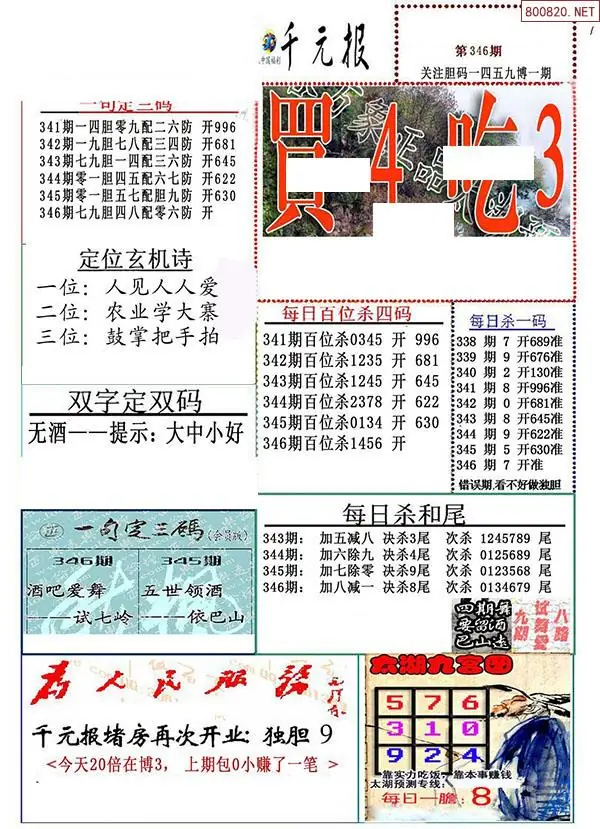 800820.NET
千元报
中国福利
第346期
关注胆码一四五九博一期
一句定三码
341期一四胆零九配二六防 开996
342期一九胆七八配三四防 开681
343期七九胆一四配三六防 开645
344期零一胆四五配六七防 开622
345期零一胆五七配胆九防 开630
346期七九胆四八配零六防 开
買4吃3
定位玄机诗
一位: 人见人人爱
二位: 农业学大寨
三位: 鼓掌把手拍
每日百位杀四码
341期百位杀0345 开 996
342期百位杀1235 开 681
343期百位杀1245 开 645
344期百位杀2378 开 622
345期百位杀0134 开 630
346期百位杀1456 开
每日杀一码
338 期 7 开689准
339 期 9 开676准
340 期 2 开130准
341 期 8 开996准
342 期 0 开681准
343 期 8 开645准
344 期 9 开622准
345 期 5 开630准
346 期 7 开准
错误期,看不好做独胆
双字定双码
无酒——提示: 大中小好
每日杀和尾
343期: 加五减八 决杀3尾 次杀 1245789 尾
344期: 加六除九 决杀4尾 次杀 0125689 尾
345期: 加七除零 决杀9尾 次杀 0123568 尾
346期: 加八减一 决杀8尾 次杀 0134679 尾
一句定三碼(会员版)
346期
酒吧爱舞
——试七岭
345期
五世领酒
——依巴山
四期舞
要留酒
巴山走
九湖
试舞爱
八路
为人民服务
千元报堵房再次开业: 独胆 9
<今天20倍在博3, 上期包0小赚了一笔 >
太湖九宫图
5 7 6
3 1 0
9 2 4
靠实力吃饭, 靠本事赚钱
太湖预测专线:
每日一膽: 8